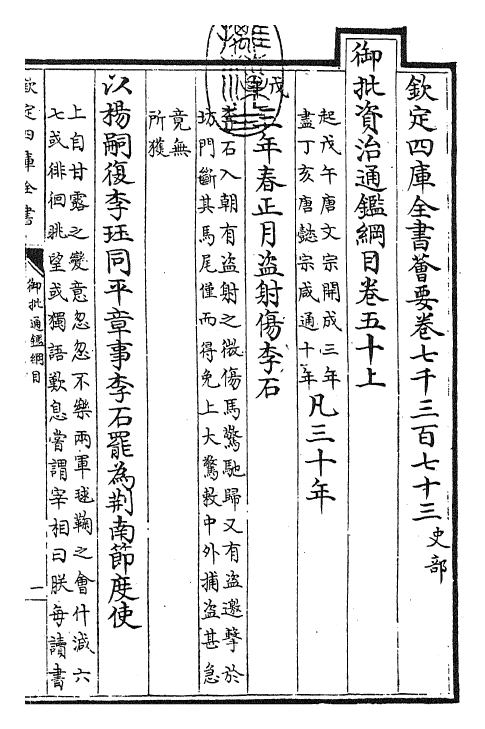 欽定四庫全書薈要卷七千三百七十三史部
御批資治通鑑綱目卷五十上
起戊午唐文宗開成三年
盡丁亥唐懿宗咸通十年
凡三十年
戊午三年春正月盜射傷李石
李石入朝有盜射之微傷馬驚馳歸又有盜邀擊於
坊門斷其馬尾僅而得免上大驚敕中外捕盜甚急
竟無
所獲
以楊嗣復李珏同平章事李石罷為荆南節度使
上自甘露之變意忽忽不樂兩軍毬鞠之會什減六
七或徘徊眺望或獨語歎息嘗謂宰相曰朕每讀書
欽定四庫全書
御批通鑑綱目
一